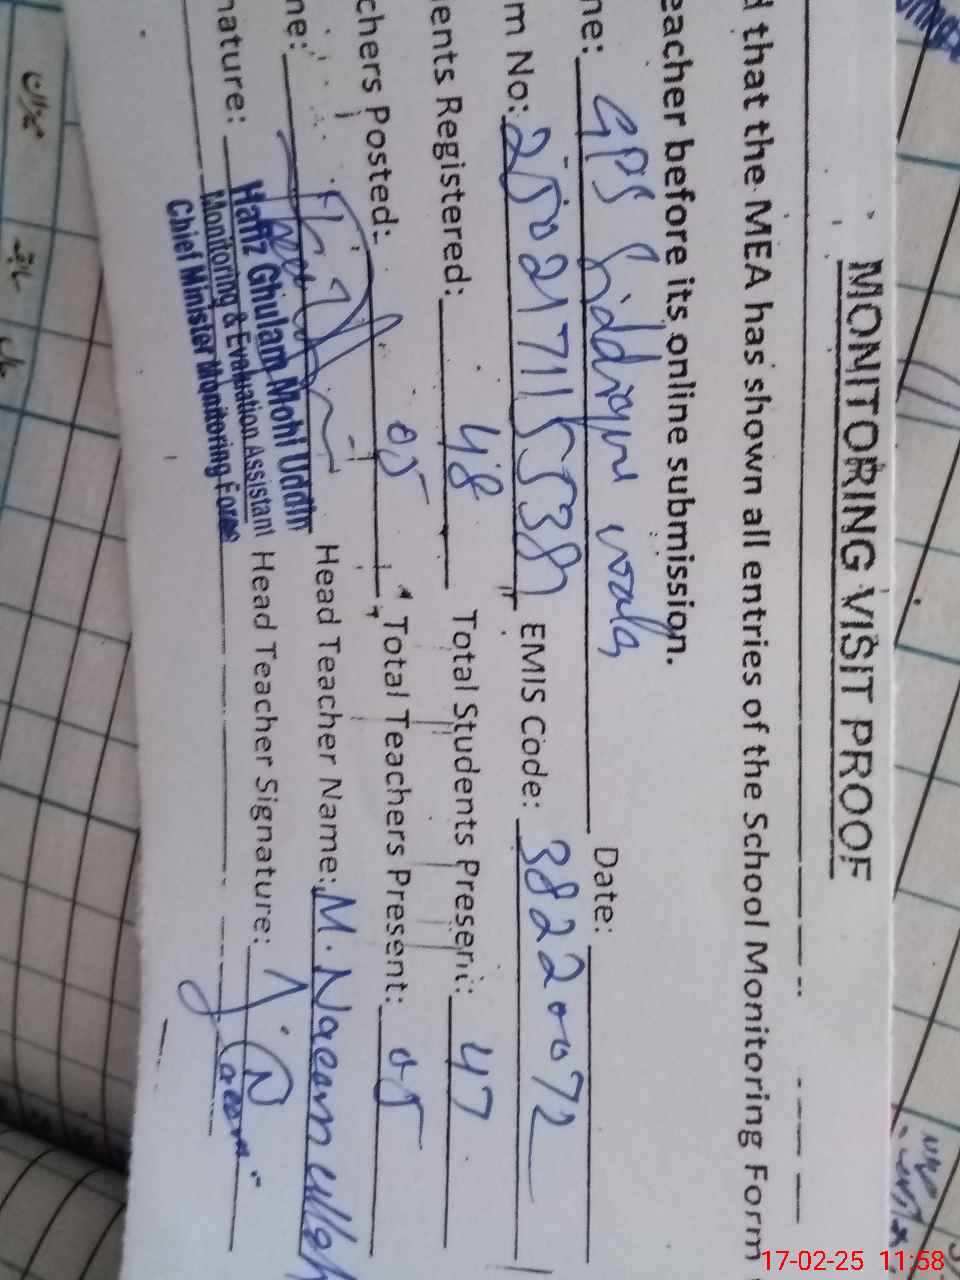 MONITORING VISIT PROOF
d that the MEA has shown all entries of the School Monitoring Form
eacher before its online submission.
ne: GPS Siddique wala Date:
m No: EMIS Code: 38220072
ents Registered: 48 Total Students Present: 47
chers Posted: 05 Total Teachers Present: 05
ne: Head Teacher Name: M. Naeem ullah
nature: Head Teacher Signature: Naeem
Hafiz Ghulam Mohi Uddin
Monitoring & Evaluation Assistant
Chief Minister Monitoring Force
17-02-25 11:58